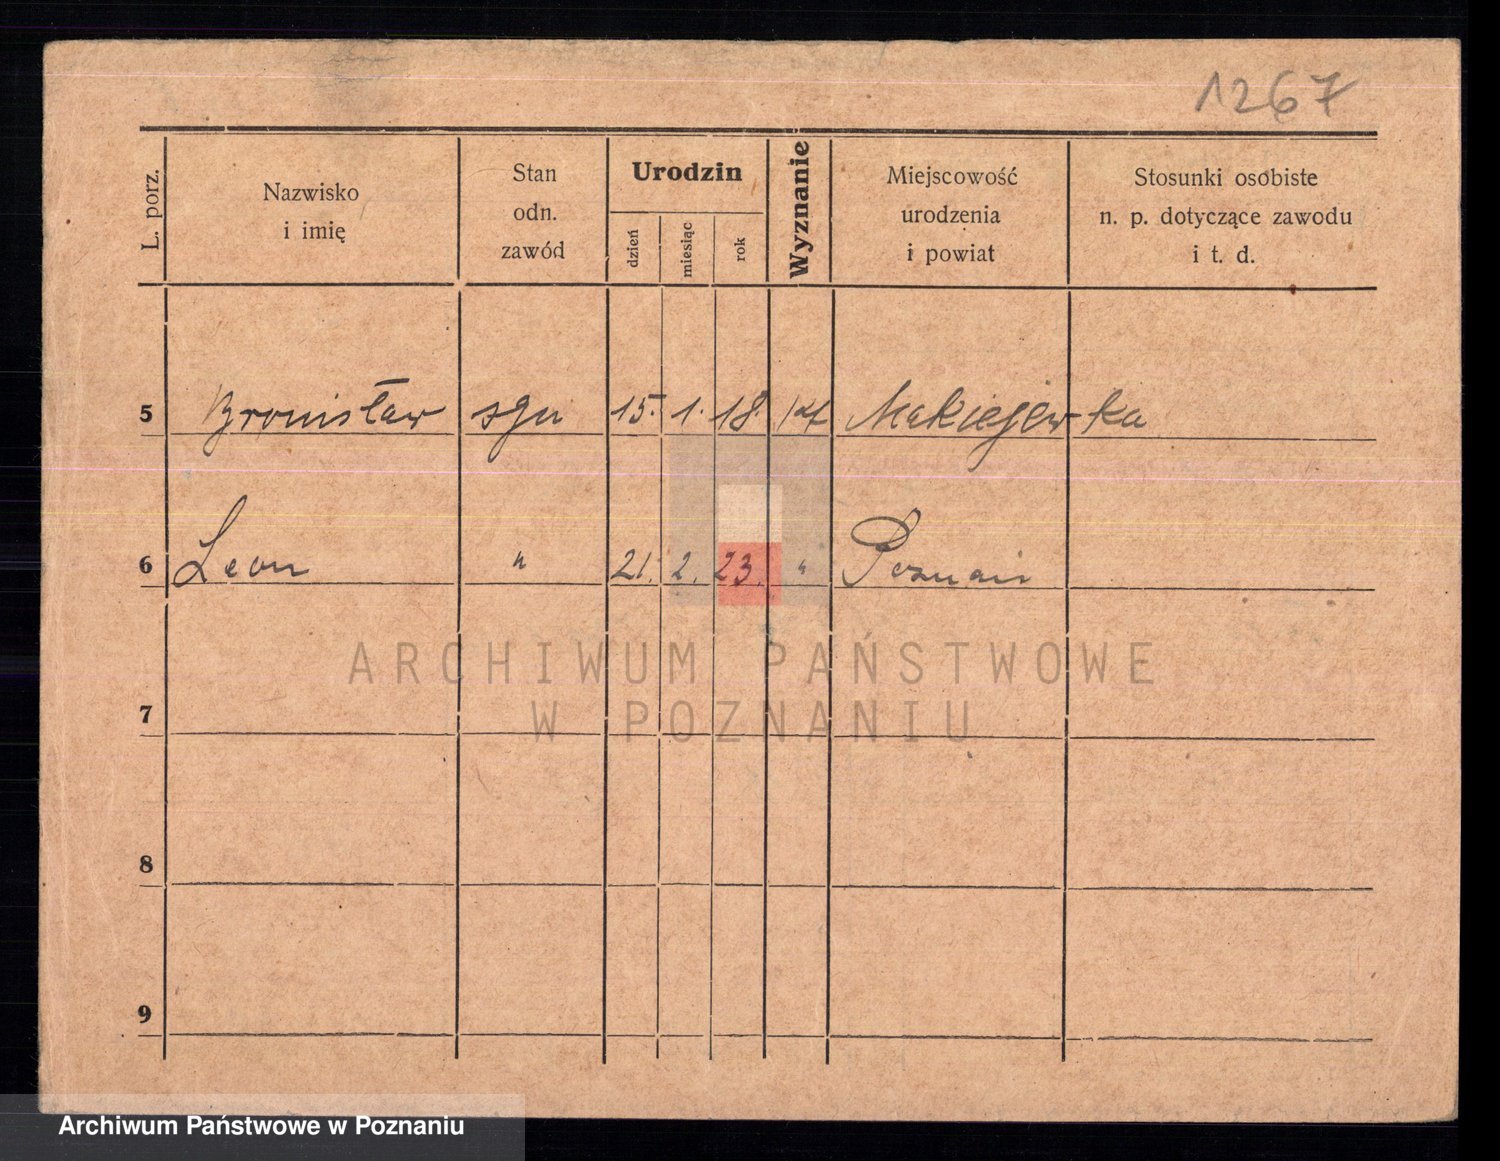 1267
L. porz.
Nazwisko i imię
Stan odn. zawód
Urodzin
dzień
miesiąc
rok
Wyznanie
Miejscowość urodzenia i powiat
Stosunki osobiste n. p. dotyczące zawodu i t. d.
5 Bronisław syn 15. 1. 18. kat Makiejewka
6 Leon " 21. 2. 23. " Poznań
ARCHIWUM PAŃSTWOWE
W POZNANIU
7
8
9
Archiwum Państwowe w Poznaniu